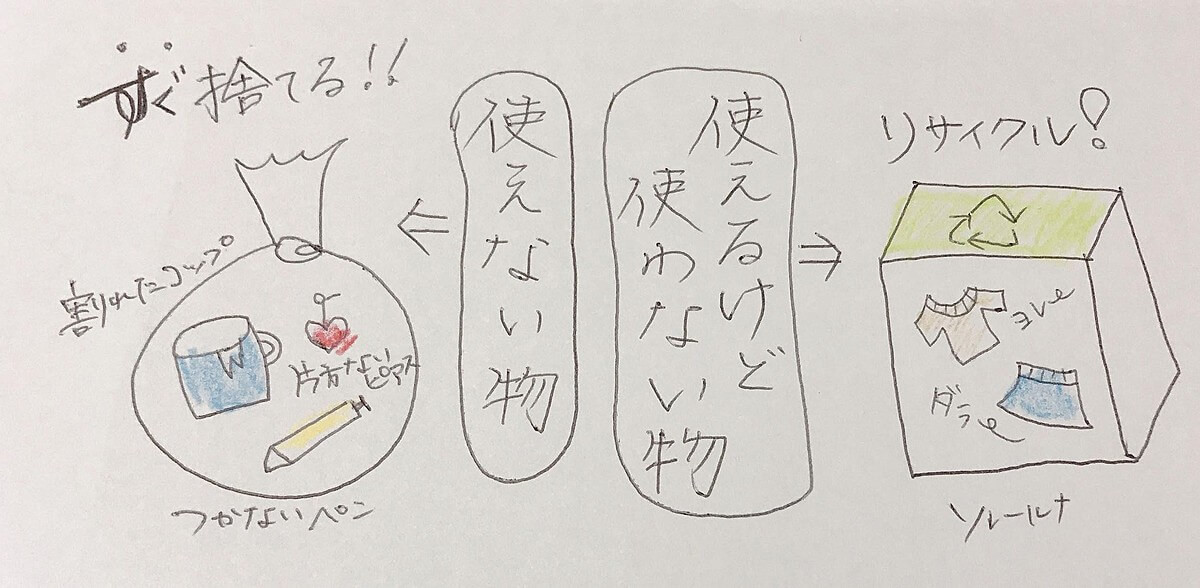 すぐ捨てる!!
割れたコップ
片方ないピアス
つかないペン
使えない物
使えるけど
使わない物
リサイクル!
ヨレ
ダラ